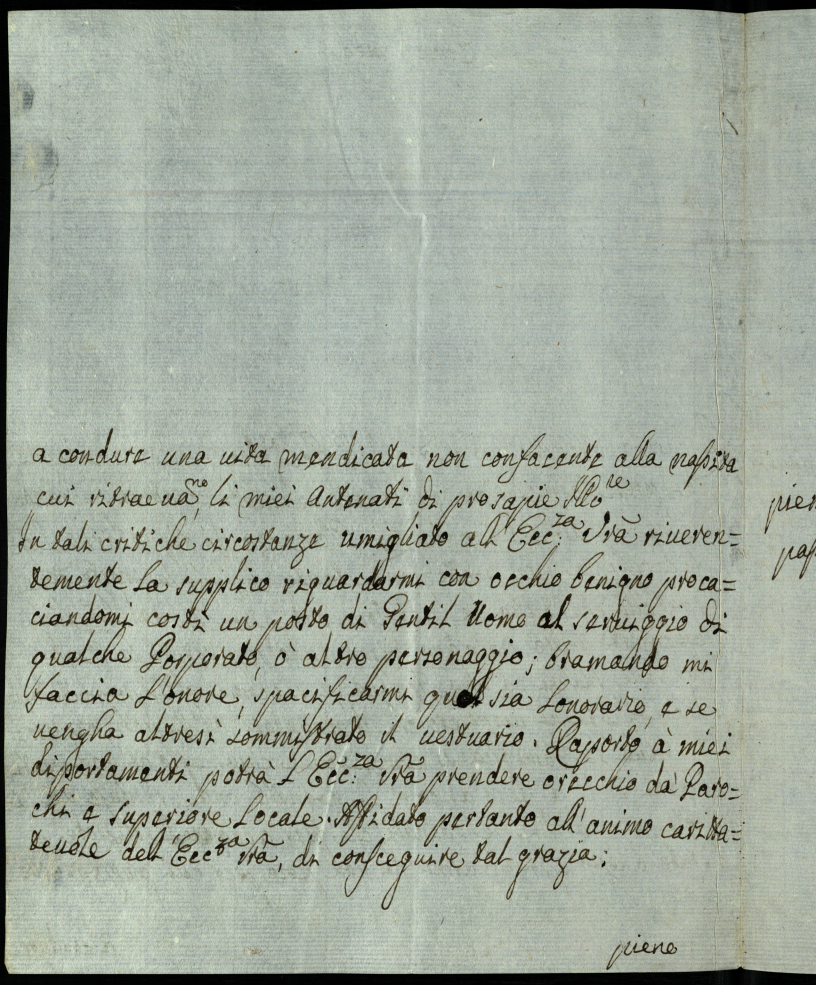 a condure una vita mendicata non confacente alla nascita
cui ritraevano li miei Antenati di prosapie Illre
In tali critiche circostanze umigliato all Ecc:za Vra riveren=
temente La supplico riguardarmi con occhio benigno proca=
ciandomi costì un posto di Gentil Uomo al serviggio di
qualche Porporato, ò altro personaggio; bramando mi
faccia L'onore, spacificarmi qual sia Lonorario, e se
vengha altresì sommistrato il vestuario. Raporto à miei
diportamenti potrà L'Ecc:za Vra prendere orecchio da Paro=
chi e superiore Locale. Affidato pertanto all'animo caritta=
tevole dell'Eccza Vra, di conseguire tal grazia;
piene
pien